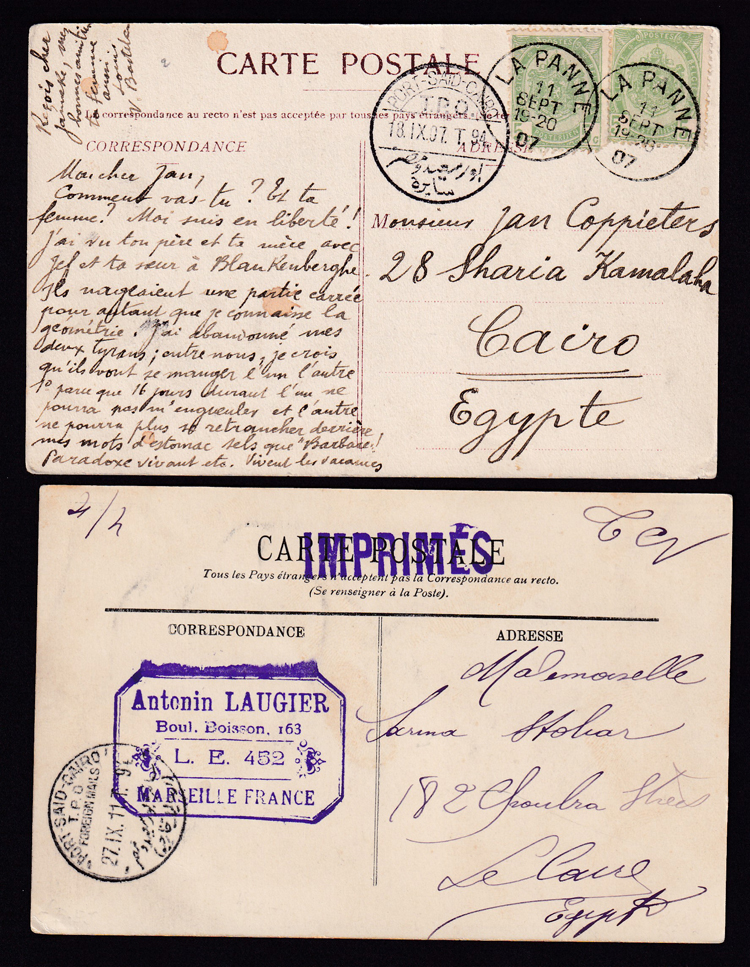 Reçois cher
Janeke, mes
bonnes amitiés
ta femme
aussi
Louis
V. Bastelaer
CARTE POSTALE
La correspondance au recto n'est pas acceptée par tous les pays étrangers.
CORRESPONDANCE
ADRESSE
PORT-SAID-CAIRO
T.P.O.
18.IX.07. T.94
LA PANNE
11
SEPT
19-20
07
LA PANNE
11
SEPT
19-20
07
Mon cher Jan,
Comment vas-tu ? Et ta
femme ? Moi suis en liberté !
J'ai vu ton père et ta mère avec
Jef et ta sœur à Blankenberghe.
Ils nageaient une partie carrée
pour autant que je connaisse la
géométrie. J'ai abandonné mes
deux tyrans ; entre nous, je crois
qu'ils vont se manger l'un l'autre
1° parce que 16 jours durant l'un ne
pourra pas m'engueuler et l'autre
ne pourra plus se retrancher derrière
mes mots d'estomac tels que "Barbare!
Paradoxe vivant etc. Vivent les vacances
Monsieur Jan Coppieters
28 Sharia Kamalaha
Cairo
Egypte
CARTE POSTALE
IMPRIMÉS
Tous les Pays étrangers n'acceptent pas la Correspondance au recto.
(Se renseigner à la Poste).
CORRESPONDANCE
ADRESSE
Antonin LAUGIER
Boul. Boisson, 163
L. E. 452
MARSEILLE FRANCE
PORT-SAID-CAIRO
T.P.O.
FOREIGN MAILS
27.IX.11
Mademoiselle
Sarina Stobar
182 Choubra
Le Caire
Egypte